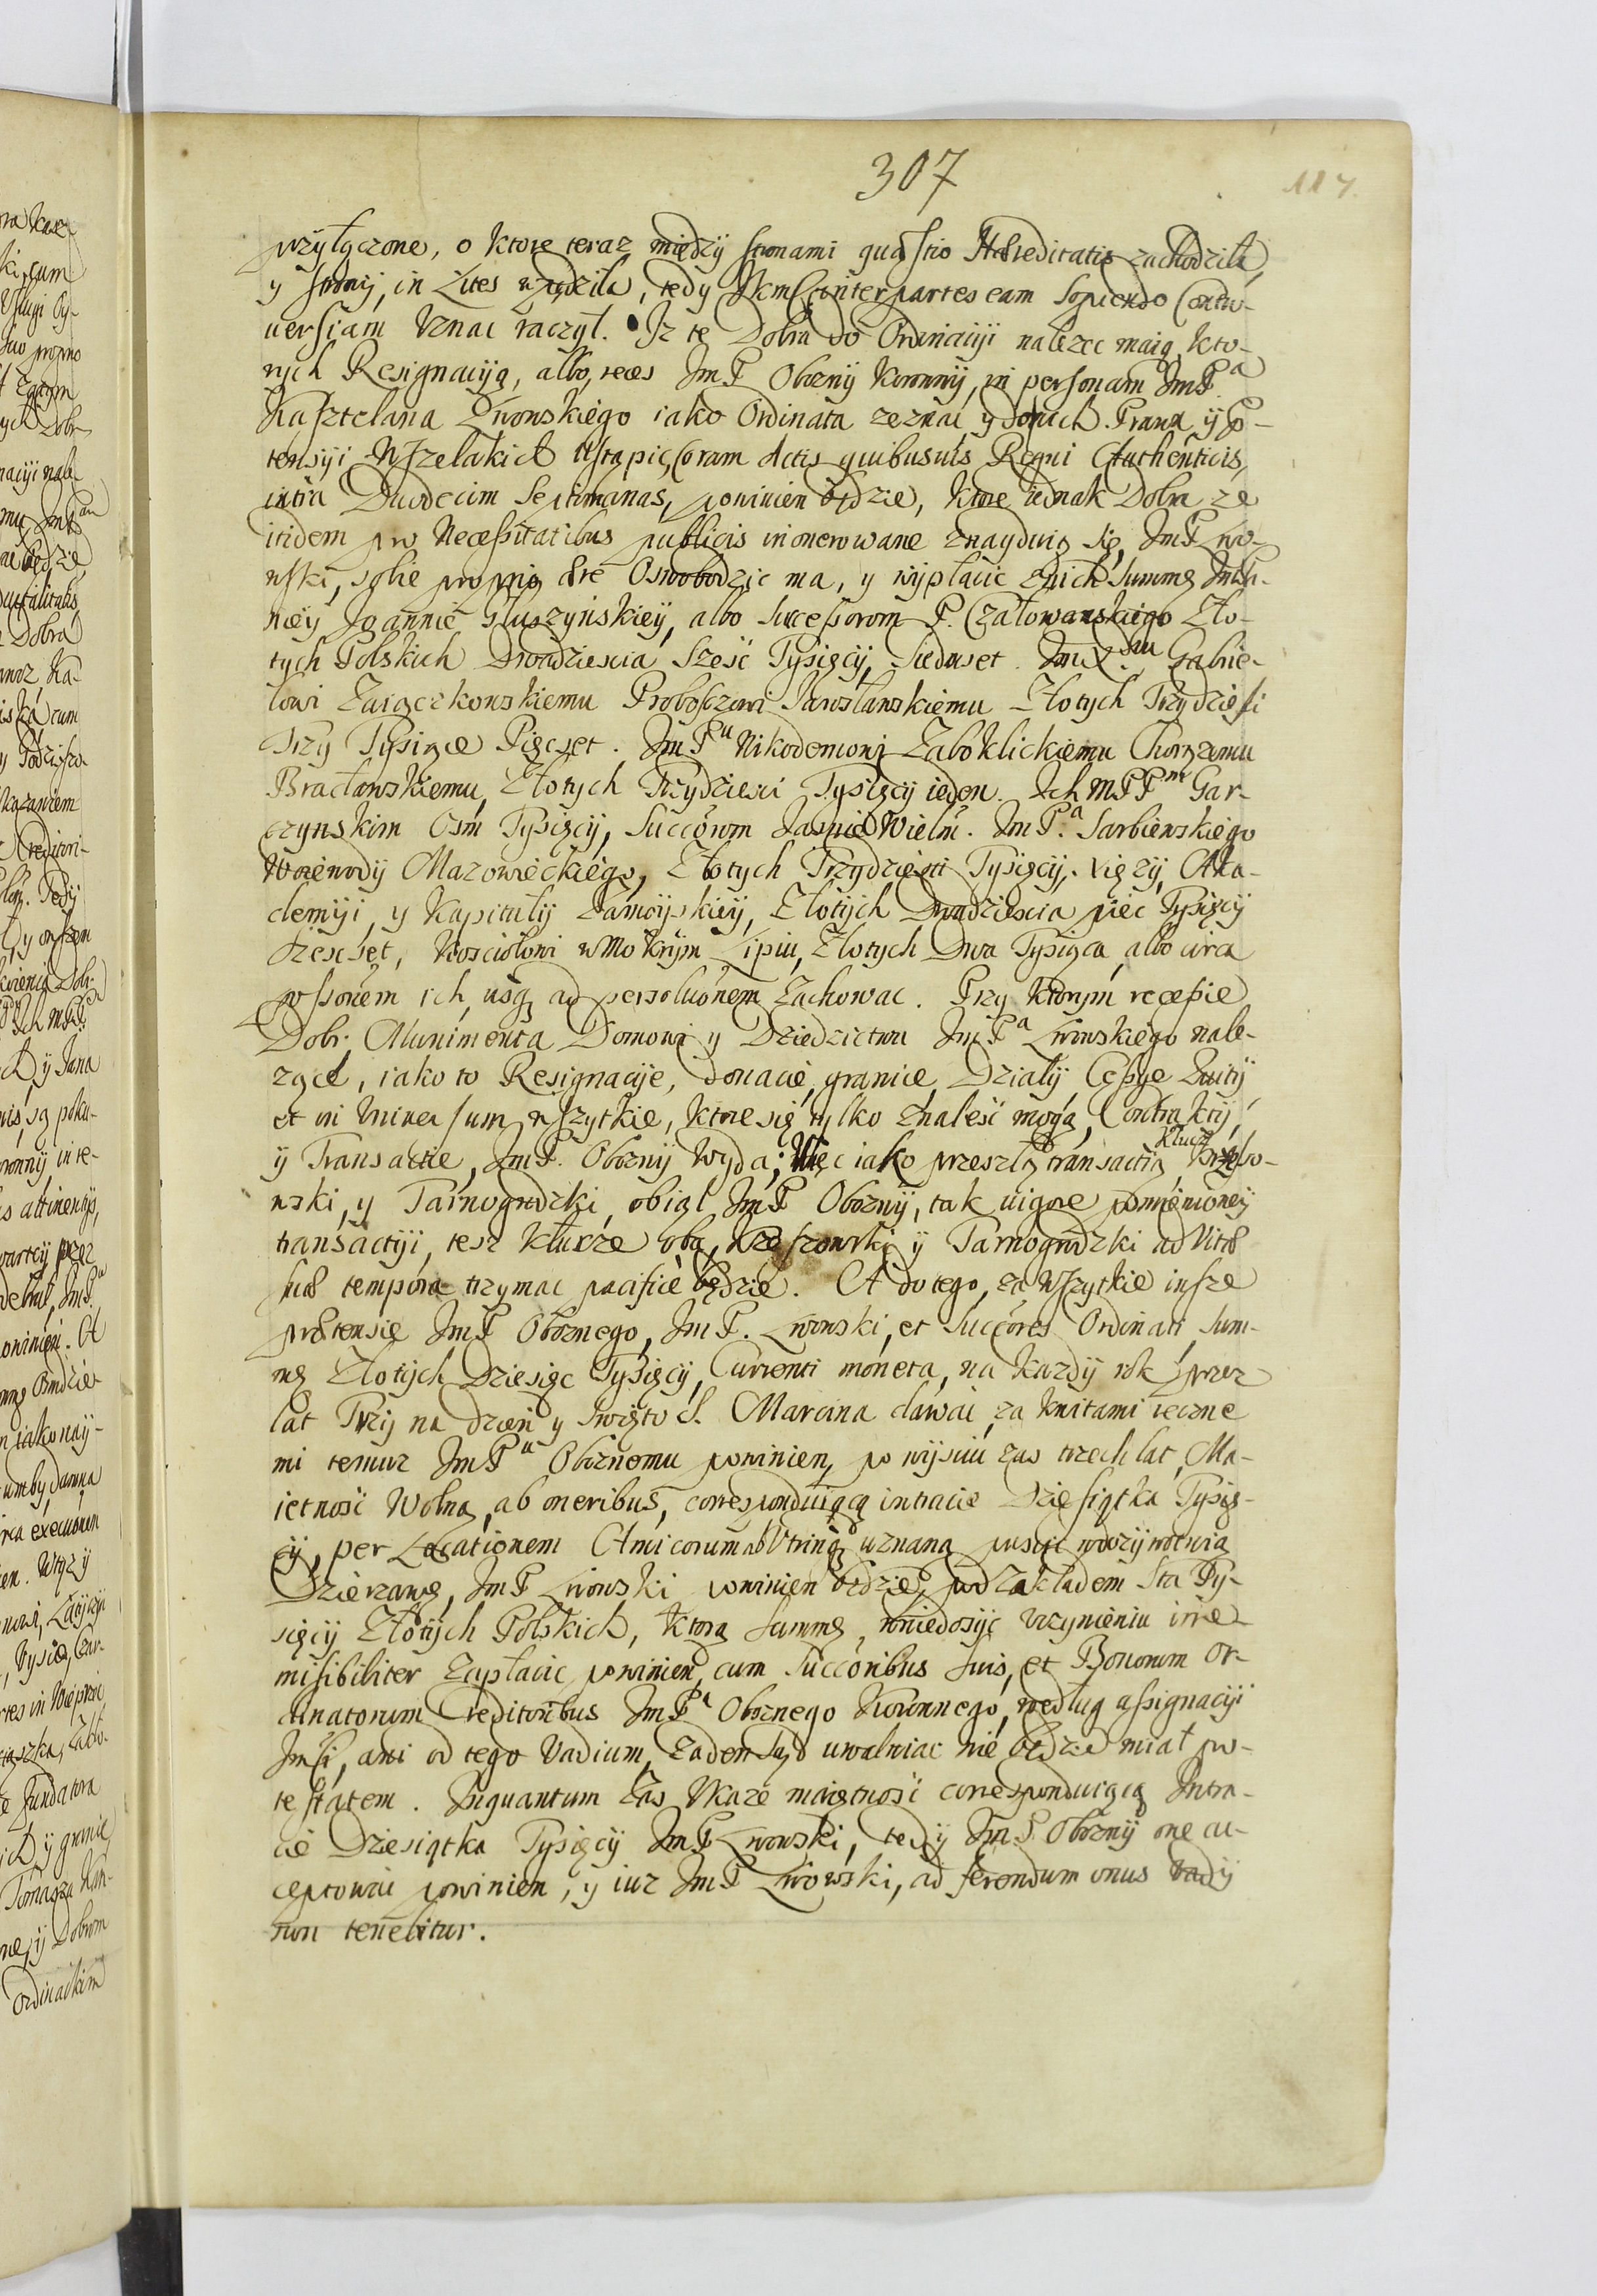 307
117.
przyłączone, o ktore teraz między stronami quæstio Hæreditatis zachodziła,
y strony, in Lites wządziła, tedy JKmść inter partes eam sopiendo Contro-
uersiam Vznac raczył. Iz te Dobra do Ordinacyi nalezec maią, kto-
rych Resignacyią, albo, reces JmP Obozny Koronny, in personam JmPa
Kasztelana Lwowskiego iako Ordinata zeznac y onych Prawa y Po-
tensyi Wszelakich Ustąpic, Coram Actis quibusuis Regni Authenticis,
intra Duodecim Septimanas, powinien będzie, ktore iednak Dobra ze
itidem pro Necessitatibus publicis inonerowane znayduią się, JmP Lwo-
wski, sobie propriô ære Oswobodzic ma, y wypłacic z nich Summę JmPa-
niey Joannie Głuszyńskiey, albo Successorom P. Czałowanskiego Zło-
tych Polskich Dwadziescia Szesć Tysięcy, Siedmset. JmX.du Gabrie-
lowi Zaiączkowskiemu Proboszczowi Jarosławskiemu Złotych Trzydziesci
Trzy Tysiące Pięcset. JmPu Nikodemowi Zaboklickiemu Chorązemu
Bracławskiemu, Złotych Trzydziesci Tysięcy ieden. Ich MPPm Gar-
czynskim Osm Tysięcy, Succôrom Jasnie Wielm. JmP.a Sarbiewskiego
Woiewody Mazowieckiego, Złotych Trzydziesti Tysięcy. Xięzy, Aka-
demiyi, y Kapituły Zamoyskiey, Złotych Dwadziescia pięc Tysięcy
szescset, Kosciołowi w Mokrym Lipiu, Złotych Dwa Tysiąca, albo circa
possonem ich, usq ad persolucionem Zachowac. Przy ktorym recessie
Dobr. Munimenta Domowi y Dziedzictwu JmPa Lwowskiego nale-
zące, iako to Resignacije, donacie, granice, Działy Cessye Kwity
et in Vniuersum wszytkie, ktore się tylko znalesć mogą, Contrakty,
y Transactie, JmP. Obozny Wyda; Więc iako przeszłą transactią, Klucz Krzeszo-
wski, y Tarnogrodzki, obiął JmP Obozny, tak uigore pomienioney
transactiyi, tesz klucze oba, Krzeszowski y Tarnogrodzki ad Vitæ
suæ tempora trzymac pacificè będzie. A do tego, za Wszytkie insze
prætensie JmP Oboznego, JmP. Lwowski, et Succôres Ordinati Sum-
mę Złotych Dziesięc Tysięcy, Currenti moneta, na kazdy rok przez
lat Trzy na dzień y swięto S. Marcina dawac, za kwitami ręczne
mi temuz JmPu Oboznemu powinien, po wysciu zas trzech lat, Ma-
ietnosc Wolną, ab oneribus, correspondującą intracie Dziesiątka Tysię-
cy, per Locationem Amicorum ab Vtrinq uznaną puscic w dozywotnią
Dzierzawę, JmP Lwowski powinien będzie, pod Zakładem Sta Ty-
sięcy Złotych Polskich, ktorą Summę, wniedosyć vczynieniu irre-
misibiliter Zapłacic powinien, cum Succôribus suis, et Bonorum Or-
dinatorum Creditoribus JmPa Oboznego Koronnego, według assignacyi
Jmści, ani od tego Vadium, zaden Sąd uwalniac nie będzie miał po-
testatem. Inquantum zas Vkaze maiętnosc correspondujacą Intra-
cie Dziesiątka Tysięcy JmP Lwowski, tedy JmP Obozny one ac-
ceptowac powinien, y iuz JmP Lwowski, ad ferendum onus Vadij
non tenebitur.